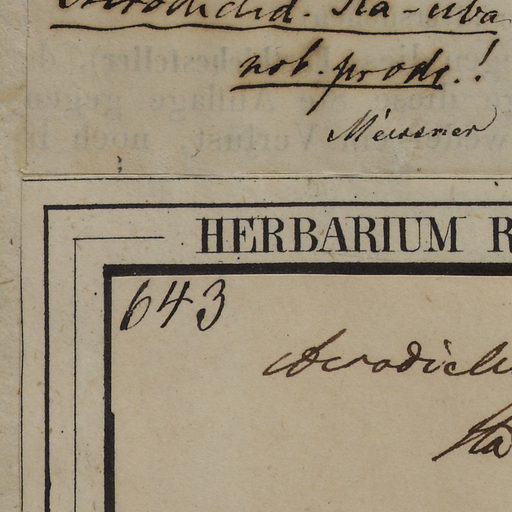 Acrodiclid. Ita-uba
nob. prodr.!
Meissner
HERBARIUM R
643
Acrodicli
Ita